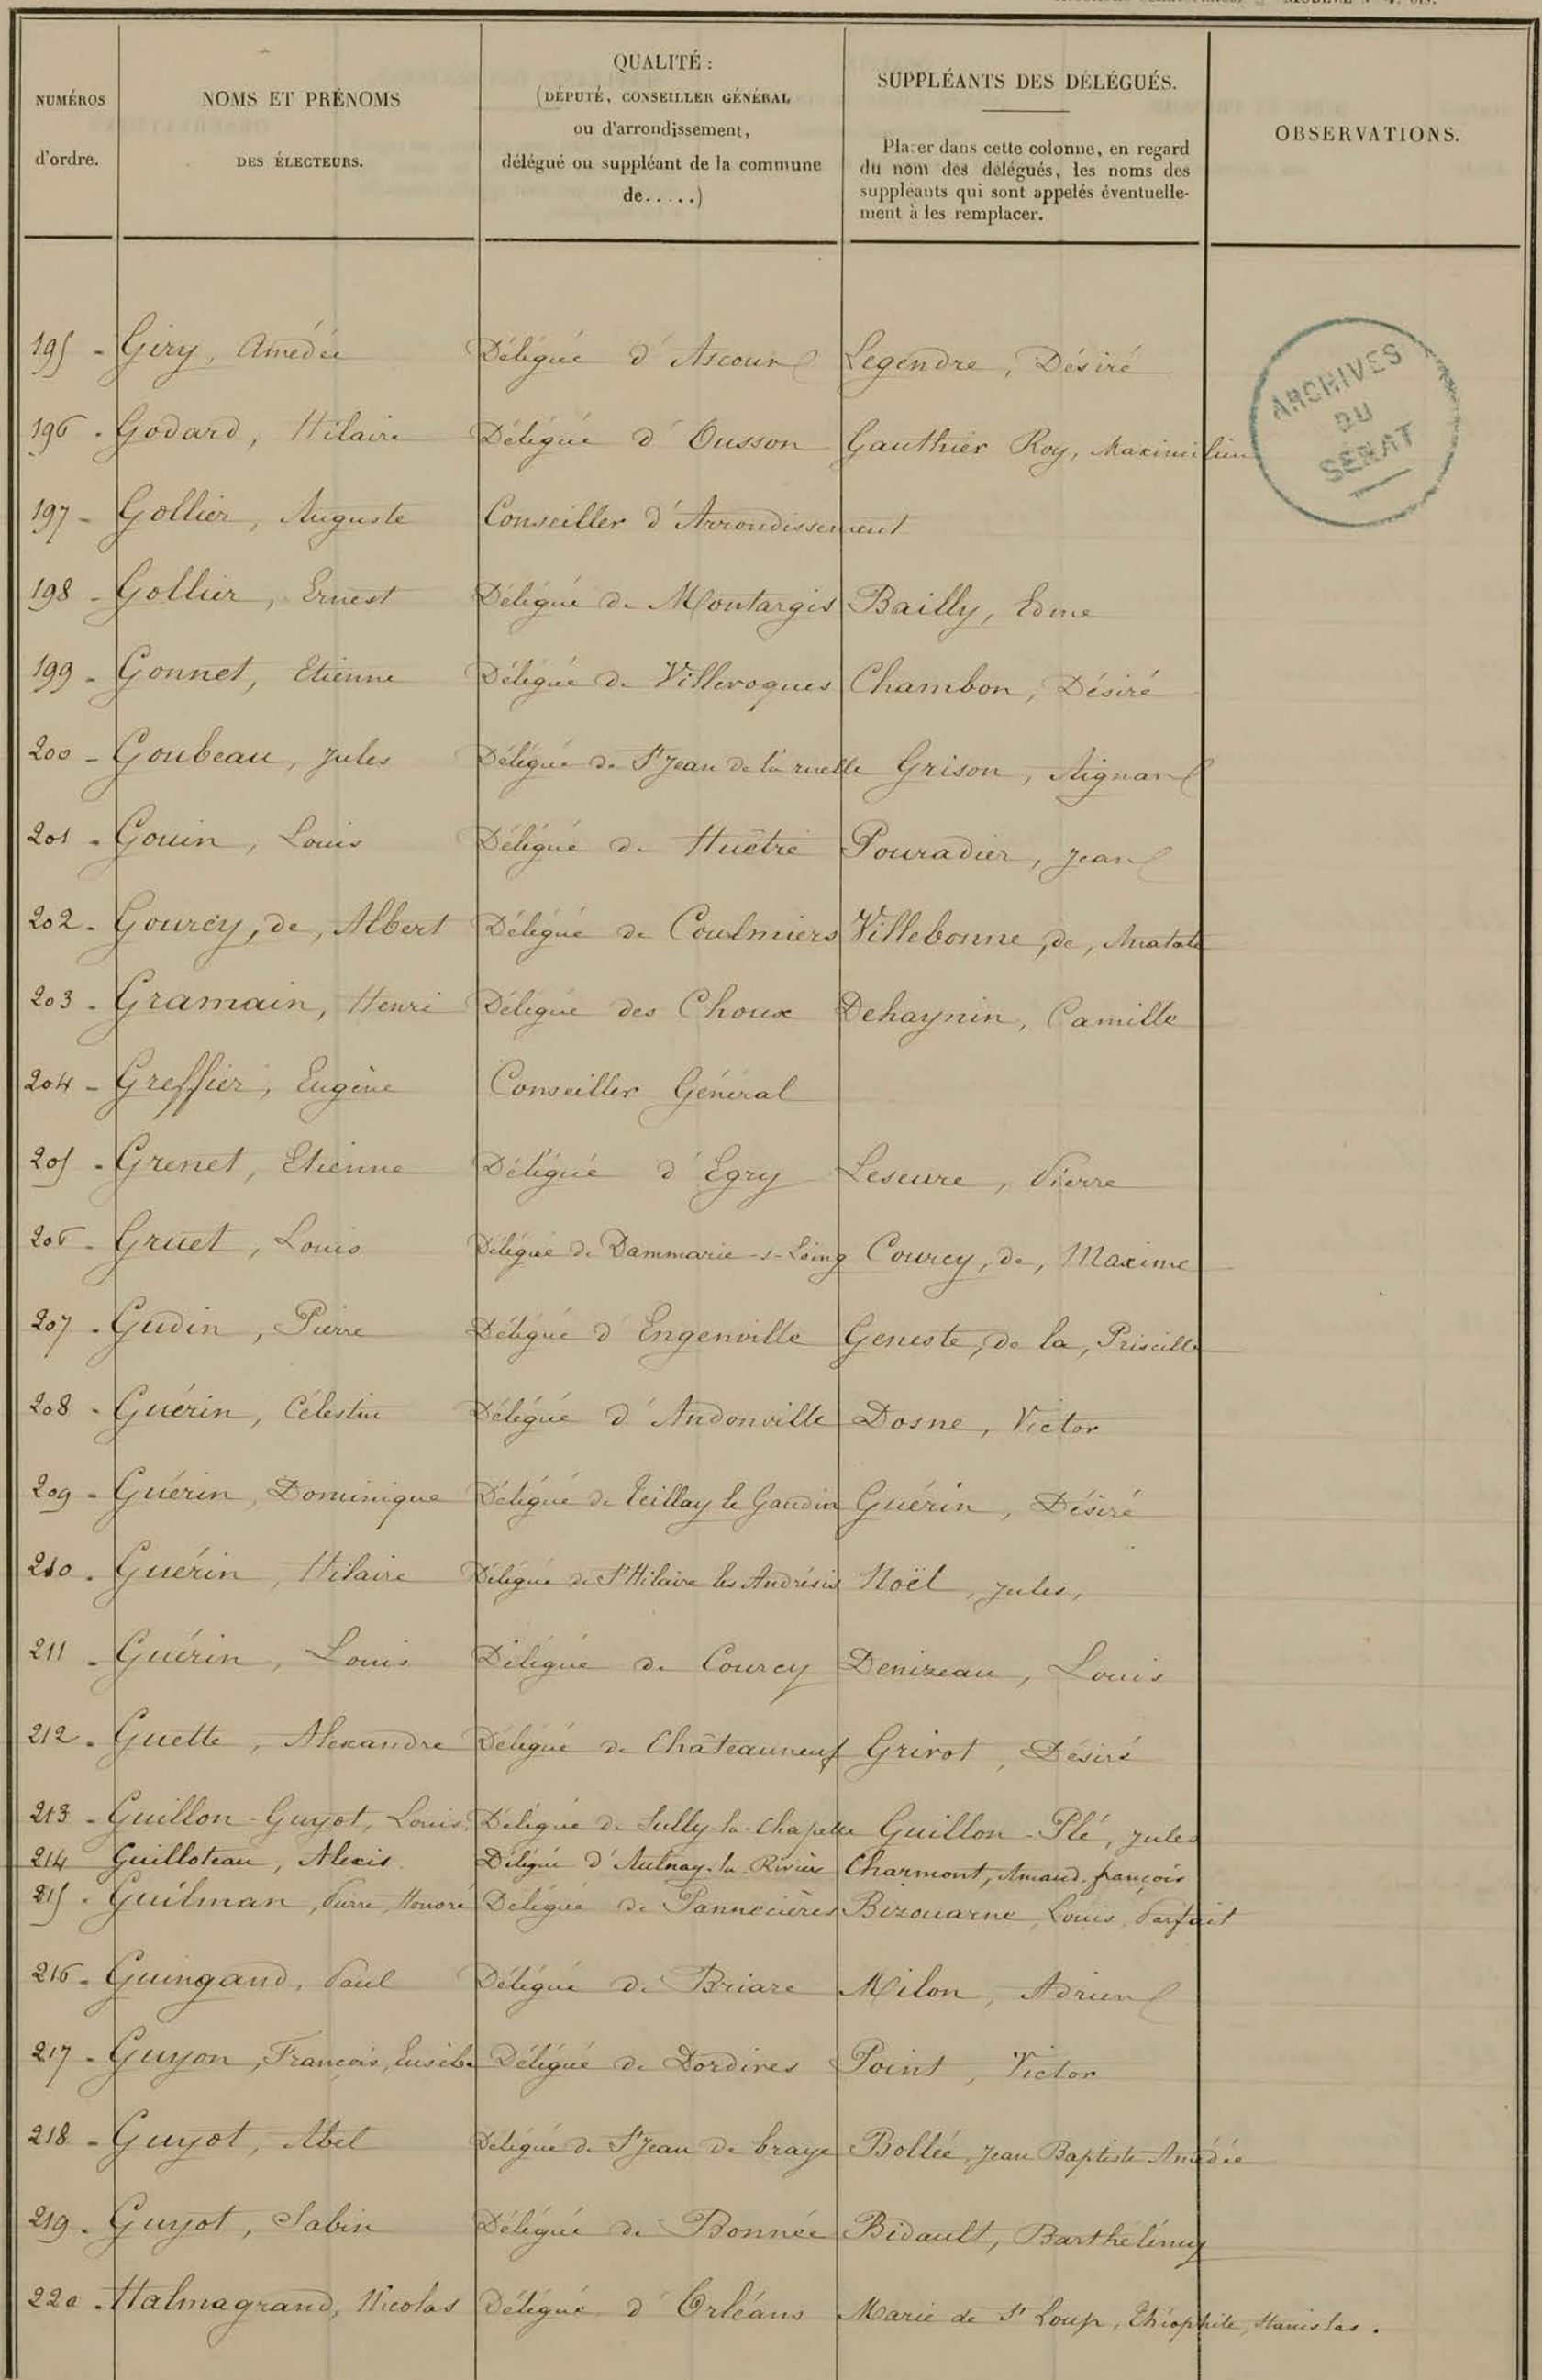 NUMÉROS
d'ordre.
NOMS ET PRÉNOMS
DES ÉLECTEURS.
QUALITÉ :
(DÉPUTÉ, CONSEILLER GÉNÉRAL
ou d'arrondissement,
délégué ou suppléant de la commune
de.....)
SUPPLÉANTS DES DÉLÉGUÉS.
Placer dans cette colonne, en regard
du nom des délégués, les noms des
suppléants qui sont appelés éventuelle-
ment à les remplacer.
OBSERVATIONS.
ARCHIVES
DU
SÉNAT
195 - Giry, Amédée Délégué d'Ascoux Legendre, Désiré
196 - Godard, Hilaire Délégué d'Ousson Gauthier Roy, Maximilien
197 - Gollier, Auguste Conseiller d'Arrondissement
198 - Gollier, Ernest Délégué de Montargis Bailly, Edme
199 - Gonnet, Etienne Délégué de Villevoques Chambon, Désiré
200 - Goubeau, Jules Délégué de St Jean de la ruelle Grison, Aignan
201 - Gouin, Louis Délégué de Huêtre Pouradier, Jean
202 - Gourcy, de, Albert Délégué de Coulmiers Villebonne, de, Anatole
203 - Gramain, Henri Délégué des Choux Dehaynin, Camille
204 - Greffier, Eugène Conseiller Général
205 - Grenet, Etienne Délégué d'Egry Leseure, Pierre
206 - Gruet, Louis Délégué de Dammarie-s-Loing Courcy, de, Maxime
207 - Gudin, Pierre Délégué d'Engenville Geneste, de la, Priscille
208 - Guérin, Célestin Délégué d'Andonville Dosne, Victor
209 - Guérin, Dominique Délégué de Teillay le Gaudin Guérin, Désiré
210 - Guérin, Hilaire Délégué de St Hilaire les Andrésis Noël, Jules,
211 - Guérin, Louis Délégué de Courcy Denizeau, Louis
212 - Guette, Alexandre Délégué de Châteauneuf Grivot, Désiré
213 - Guillon-Guyot, Louis Délégué de Sully-la-Chapelle Guillon-Plé, Jules
214 Guilloteau, Alexis Délégué d'Aulnay-la-Rivière Charmont, Amand-françois
215 - Guilman, Pierre, Honoré Délégué de Pannecières Bizouarne, Louis, Parfait
216 - Guingand, Paul Délégué de Briare Milon, Adrien
217 - Guyon, François, Eusèbe Délégué de Dordives Point, Victor
218 - Guyot, Abel Délégué de St Jean de braye Bollée, Jean Baptiste Amédée
219 - Guyot, Sabin Délégué de Bonnée Bidault, Barthélémy
220 - Halmagrand, Nicolas Délégué d'Orléans Marie de St Loup, Théophile, Stanislas.